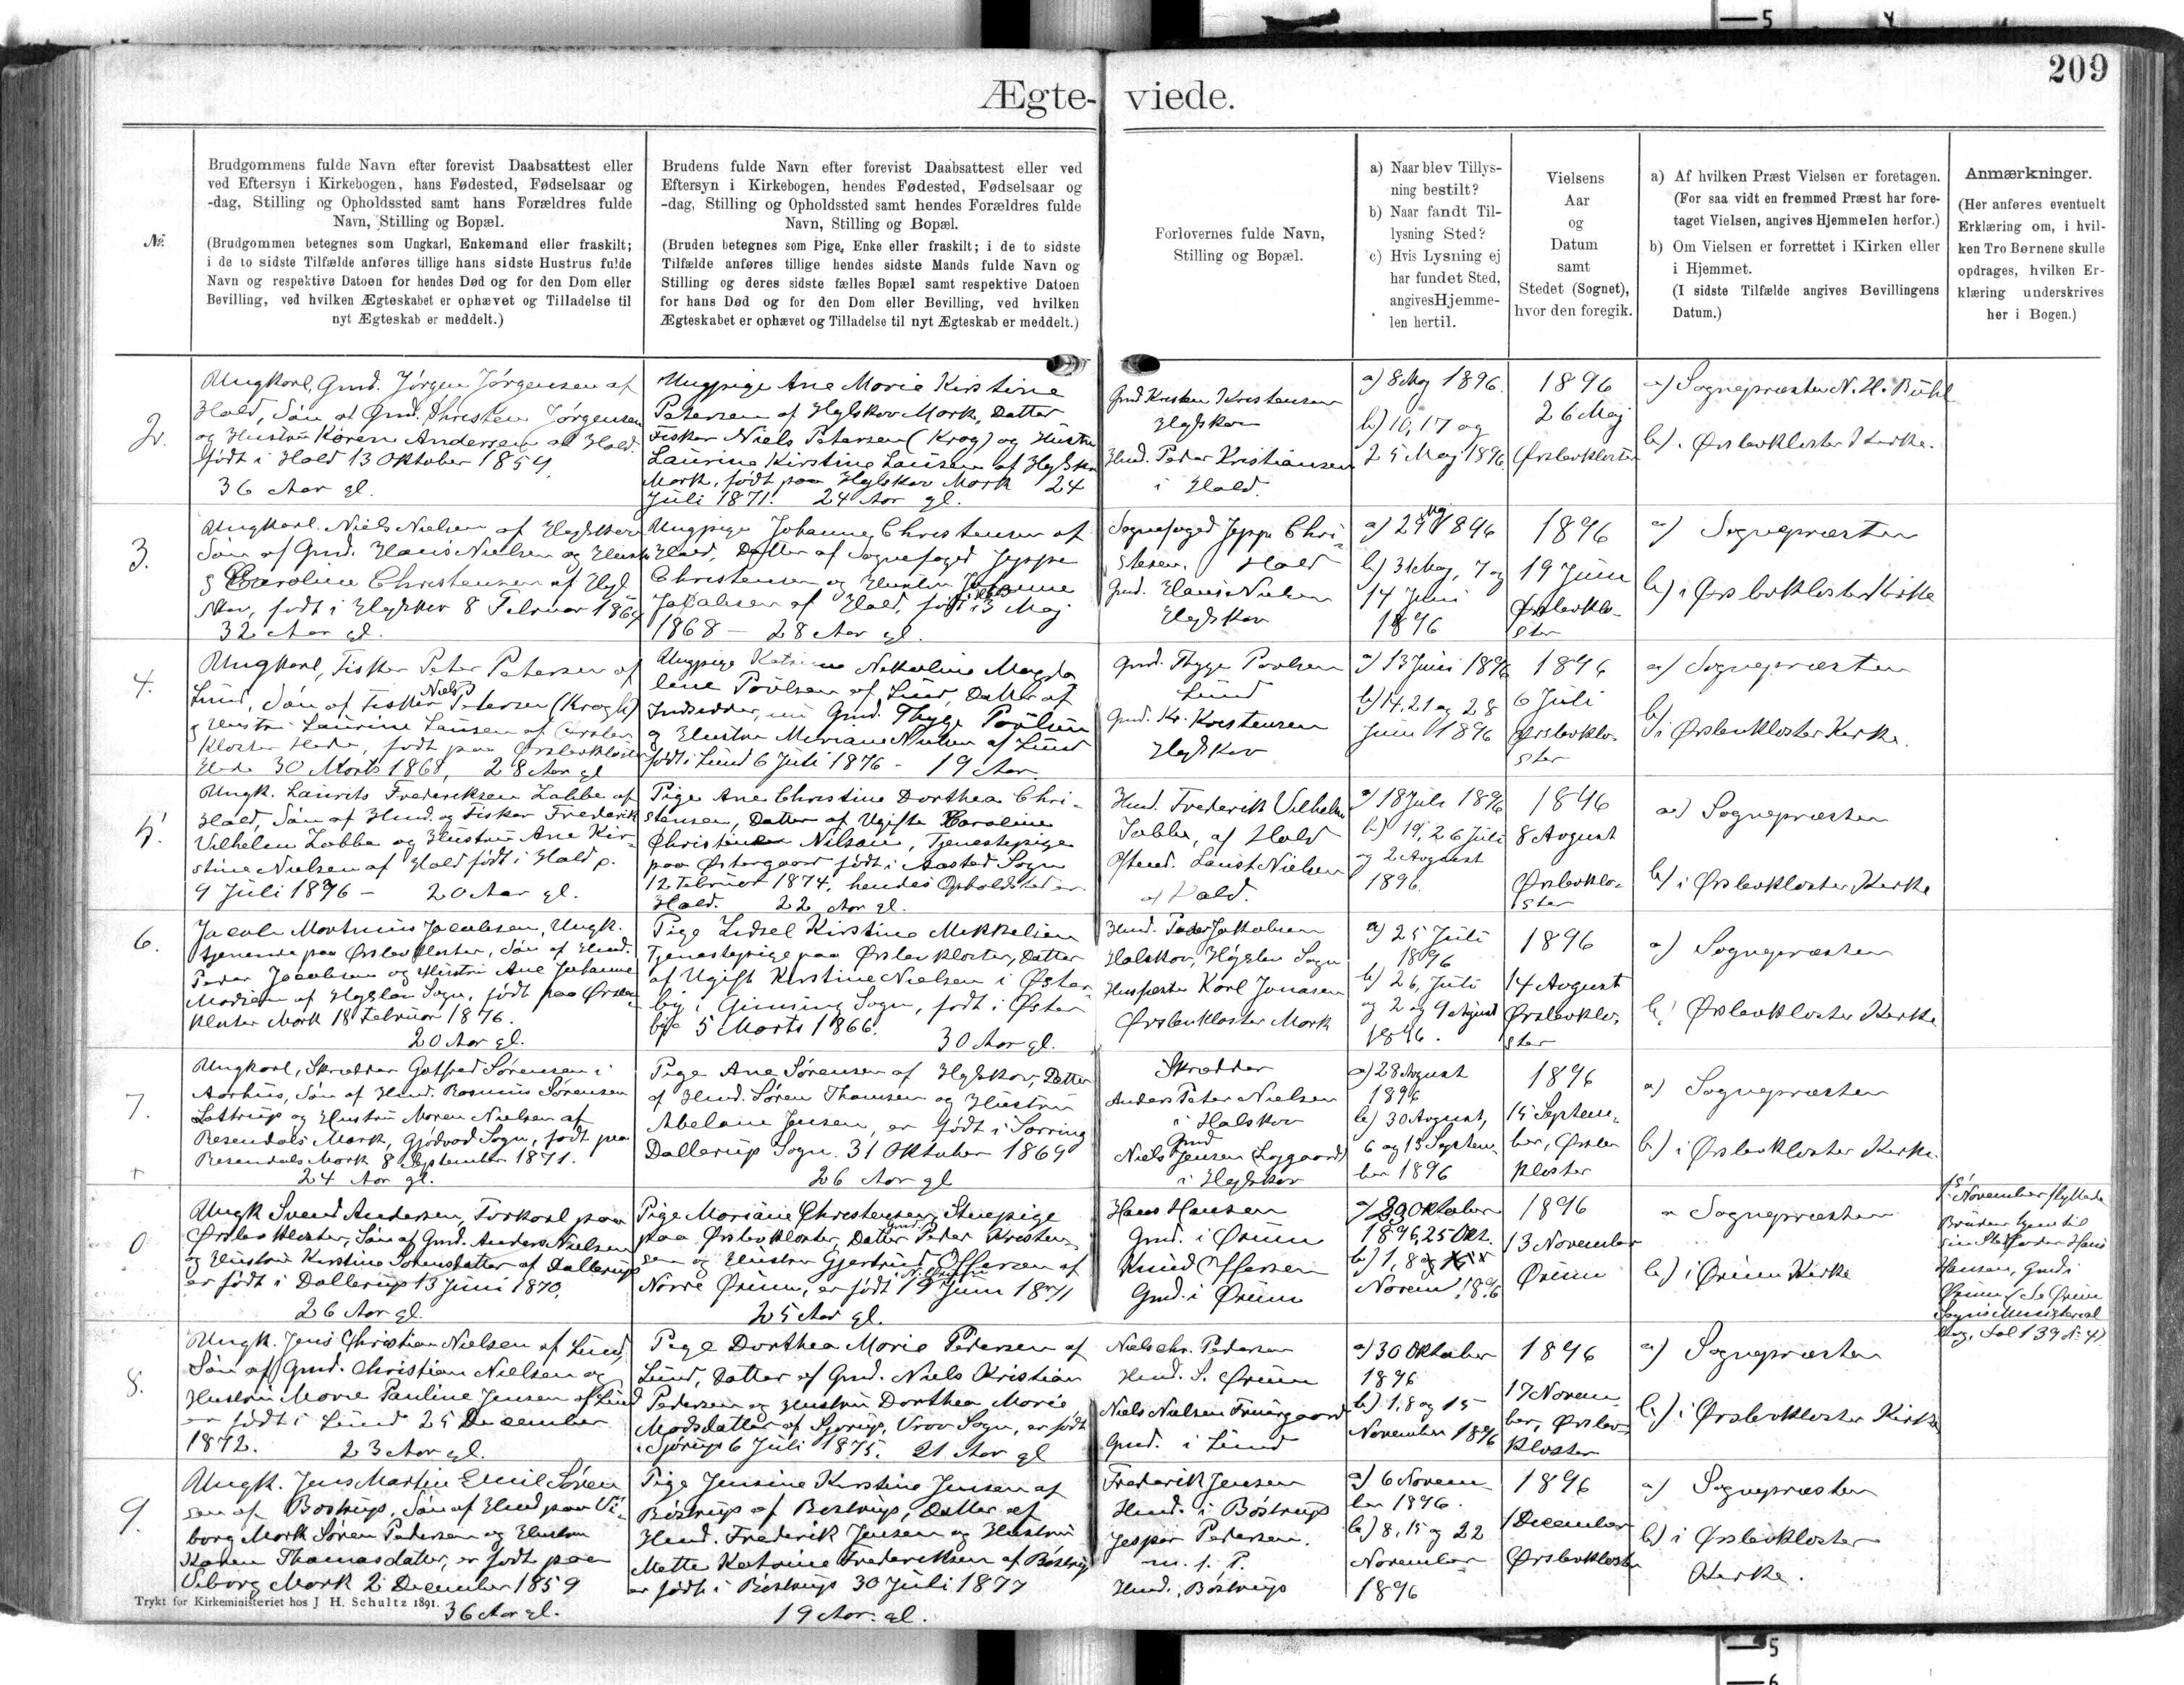 209
Ægte- viede.
№.
Brudgommens fulde Navn efter forevist Daabsattest eller
ved Eftersyn i Kirkebogen, hans Fødested, Fødselsaar og
-dag, Stilling og Opholdssted samt hans Forældres fulde
Navn, Stilling og Bopæl.
(Brudgommen betegnes som Ungkarl, Enkemand eller fraskilt;
i de to sidste Tilfælde anføres tillige hans sidste Hustrus fulde
Navn og respektive Datoen for hendes Død og for den Dom eller
Bevilling, ved hvilken Ægteskabet er ophævet og Tilladelse til
nyt Ægteskab er meddelt.)
Brudens fulde Navn efter forevist Daabsattest eller ved
Eftersyn i Kirkebogen, hendes Fødested, Fødselsaar og
-dag, Stilling og Opholdssted samt hendes Forældres fulde
Navn, Stilling og Bopæl.
(Bruden betegnes som Pige, Enke eller fraskilt; i de to sidste
Tilfælde anføres tillige hendes sidste Mands fulde Navn og
Stilling og deres sidste fælles Bopæl samt respektive Datoen
for hans Død og for den Dom eller Bevilling, ved hvilken
Ægteskabet er ophævet og Tilladelse til nyt Ægteskab er meddelt.)
Forlovernes fulde Navn,
Stilling og Bopæl.
a) Naar blev Tillys-
ning bestilt?
b) Naar fandt Til-
lysning Sted?
c) Hvis Lysning ej
har fundet Sted,
angives Hjemme-
len hertil.
Vielsens
Aar
og
Datum
samt
Stedet (Sognet),
hvor den foregik.
a) Af hvilken Præst Vielsen er foretagen.
(For saa vidt en fremmed Præst har fore-
taget Vielsen, angives Hjemmelen herfor.)
b) Om Vielsen er forrettet i Kirken eller
i Hjemmet.
(I sidste Tilfælde angives Bevillingens
Datum.)
Anmærkninger.
(Her anføres eventuelt
Erklæring om, i hvil-
ken Tro Børnene skulle
opdrages, hvilken Er-
klæring underskrives
her i Bogen.)
2.
Ungkarl, Gmd. Jørgen Jørgensen af
Hald, Søn af Gmd. Christen Jørgensen
og Hustru Karen Andersen af Hald.
født i Hald 13 Oktober 1859
36 Aar gl.
Ungpige Ane Marie Kirstine
Petersen af Hejlskov Mark, Datter
Fisker Niels Petersen (Krog) og Hustru
Laurine Kirstine Lausen af Hejlskov
Mark, født paa Hejlskov Mark 24
Juli 1871. 24 Aar gl.
Gmd Kristen Kristensen
Hejlskov
Hmd. Peder Kristiansen
i Hald.
a) 8 Maj 1896.
b) 10, 17 og
25 Maj 1896
1896
26 Maj
Ørslevkloster
a) Sognepræsten N. H. Buhl
b) i Ørslevkloster Kirke.
3.
Ungkarl. Niels Nielsen af Hejlskov
Søn af Gmd. Hans Nielsen og Hustr
Caroline Christensen af Hejl-
skov, født i Hejlskov 8 Februar 1864
32 Aar gl.
Ungpige Johanne Christensen af
Hald, Datter af Sognefoged Jeppe
Christensen og Hustru Johanne
Jakobsen af Hald, født i 3 Maj
1868 – 28 Aar gl.
Sognefoged Jeppe Chri-
stensen. Hald
Gmd. Hans Nielsen
Hejlskov
a) 29 Maj 1896
b) 31 Maj, 7 og
14 Juni
1896
1896
19 Juni
Ørslevklo-
ster
a) Sognepræsten
b) i Ørslevkloster Kirke
4.
Ungkarl, Fisker Peter Petersen af
Lund, Søn af Fisker Niels Petersen (Krogh)
og Hustru Laurine Lausen af Ørslev
Kloster Hede, født paa Ørslevkloster
Hede 30 Marts 1868, 28 Aar gl
Ungpige Katrine Nikoline Magda
lene Poulsen af Lund, Datter af
Indsidder, nu Gmd. Thyge Poulsen
og Hustru Mariane Nielsen af Lund
født i Lund 6 Juli 1876 – 19 Aar.
Gmd. Thyge Poulsen
Lund
Gmd. Kr. Kristensen
Hejlskov
a) 13 Juni 1896
b) 14, 21 og 28
Juni 1896
1896
6 Juli
Ørslevklo-
ster
a) Sognepræsten
b) i Ørslevkloster Kirke.
5.
Ungk. Laurits Frederiksen Labbe af
Hald, Søn af Hmd. og Fisker Frederik
Vilhelm Labbe og Hustru Ane Kir-
stine Nielsen af Hald født i Hald
9 Juli 1876 – 20 Aar gl.
Pige Ane Christine Dorthea Chri-
stensen, Datter af Ugifte Caroline
Christine Nilsen, Tjenestepige
paa Østergaard født i Aasted Sogn
12 Februar 1874, hendes Opholdssted er
Hald. 22 Aar gl.
Hmd. Frederik Vilhelm
Labbe, af Hald
Laust Nielsen
af Hald.
a) 18 Juli 1896
b) 19, 26 Juli
og 2 August
1896.
1896
8 August
Ørslevklo-
ster
a) Sognepræsten
b) i Ørslevkloster Kirke
6.
Jacob Martinus Jacobsen, Ungk.
tjenende paa Ørslevkloster, Søn af Hmd.
Peder Jacobsen og Hustru Ane Johanne
Madsen af Højslev Sogn, født paa Ørslev-
kloster Mark 18 Februar 1876.
20 Aar gl.
Pige Zidsel Kirstine Mikkelsen
Tjenestepige paa Ørslevkloster, Datter
af Ugift Kirstine Nielsen i Øster
by i Ginding Sogn, født i Øster
bye 5 Marts 1866. 30 Aar gl.
Hmd. Peder Jakobsen
Halskov, Højslev Sogn
Husfæster Karl Jonasen
Ørslevkloster Mark
a) 25 Juli
1896
b) 26, Juli
og 2 og 9 August
1896.
1896
14 August
Ørslevklo-
ster
a) Sognepræsten
b) Ørslevkloster Kirke
7.
Ungkarl, Skrædder Gotfred Sørensen i
Aarhus, Søn af Hmd. Rasmus Sørensen
Lottrup og Hustru Maren Nielsen af
Resendals Mark, Gjødvad Sogn, født paa
Resendals Mark 8 September 1871.
24 Aar gl.
Pige Ane Sørensen af Hejlskov, Datter
af Hmd. Søren Thomsen og Hustru
Abelone Jensen, er født i Sorring
Dallerup Sogn. 31 Oktober 1869
26 Aar gl
Skrædder
Anders Peter Nielsen
i Halskov
Gmd
Niels Jensen (Loggaard)
i Hejlskov
a) 28 August
1896
b) 30 August,
6 og 13 Septem-
ber 1896
1896
15 Septem-
ber, Ørslev
kloster
a) Sognepræsten
b) i Ørslevkloster Kirke.
+
0
Ungk Svend Andersen, Forkarl paa
Ørslevkloster, Søn af Gmd. Anders Nielsen
og Hustru Kirstine Sørensdatter af Dallerup
er født i Dallerup 13 Juni 1870.
26 Aar gl.
Pige Mariane Christensen, Stuepige
paa Ørslevkloster, Datter Gmd. Peder Kristen-
sen og Hustru Gjertrud Offersen af
Nørre Ørum, er født 19 Juni 1871
25 Aar gl.
Hans Hansen
Gmd. i Ørum
Knud Offersen
Gmd. i Ørum
a) Oktober
1896, 25 Okt.
b) 1, 8
Novem. 1896
1896
13 November
Ørum
a Sognepræsten
b) i Ørum Kirke
November flyttede
Bruden hjem til
sin Stedfader Hans
Hansen, Gmd i
Ørum (Se Ørum
Sogns Ministerial
bog, Fol 139 No 4)
8.
Ungk. Jens Christian Nielsen af Lund,
Søn af Gmd. Christian Nielsen og
Hustru Marie Pauline Jensen af Lund
er født i Lund 25 December
1872. 23 Aar gl.
Pige Dorthea Marie Pedersen af
Lund, Datter af Gmd. Niels Kristian
Pedersen og Hustru Dorthea Marie
Madsdatter af Sjørup, Vroue Sogn, er født
i Sjørup 6 Juli 1875. 21 Aar gl
Niels Chr. Pedersen
Hmd. S. Ørum
Niels Nielsen Fruergaard
Gmd. i Lund
a) 30 Oktober
1896
b) 1, 8 og 15
November 1896
1896
17 Novem-
ber, Ørslev-
kloster
a) Sognepræsten
b) i Ørslevkloster Kirke
9.
Ungk. Jens Martin Emil Søren
sen af Bostrup, Søn af Hmd paa Vi-
borg Mark Søren Pedersen og Hustru
Karen Thomasdatter, er født paa
Viborg Mark 2 December 1859
36 Aar gl.
Pige Jensine Kirstine Jensen af
Bostrup af Bostrup, Datter af
Hmd. Frederik Jensen og Hustru
Mette Katrine Frederiksen af Bostrup
er født i Bostrup 30 Juli 1877
19 Aar. gl.
Frederik Jensen
Hmd. i Bøstrup
Jesper Pedersen.
m. f. P.
Hmd., Bøstrup
a) 6 Novem
ber 1896.
b) 8, 15 og 22
November
1896
1896
1 December
Ørslevkloster
a) Sognepræsten
b) i Ørslevkloster
Kirke.
Trykt for Kirkeministeriet hos J. H. Schultz 1891.